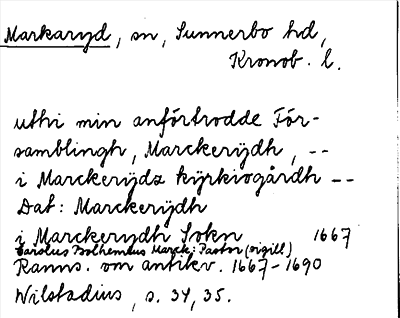 Markaryd, sn, Sunnerbo hd,
Kronob. l.
uthi min anförtrodde För-
samblingh, Marckerÿdh, --
i Marckerÿdz kÿrkiogårdh --
Dat: Marckerÿdh
i Marckerÿdh Sokn 1667
Carolus Bolhemius Marck: Pastor (sigill)
Ranns. om antikv. 1667-1690
Wilstadius, s. 34, 35.